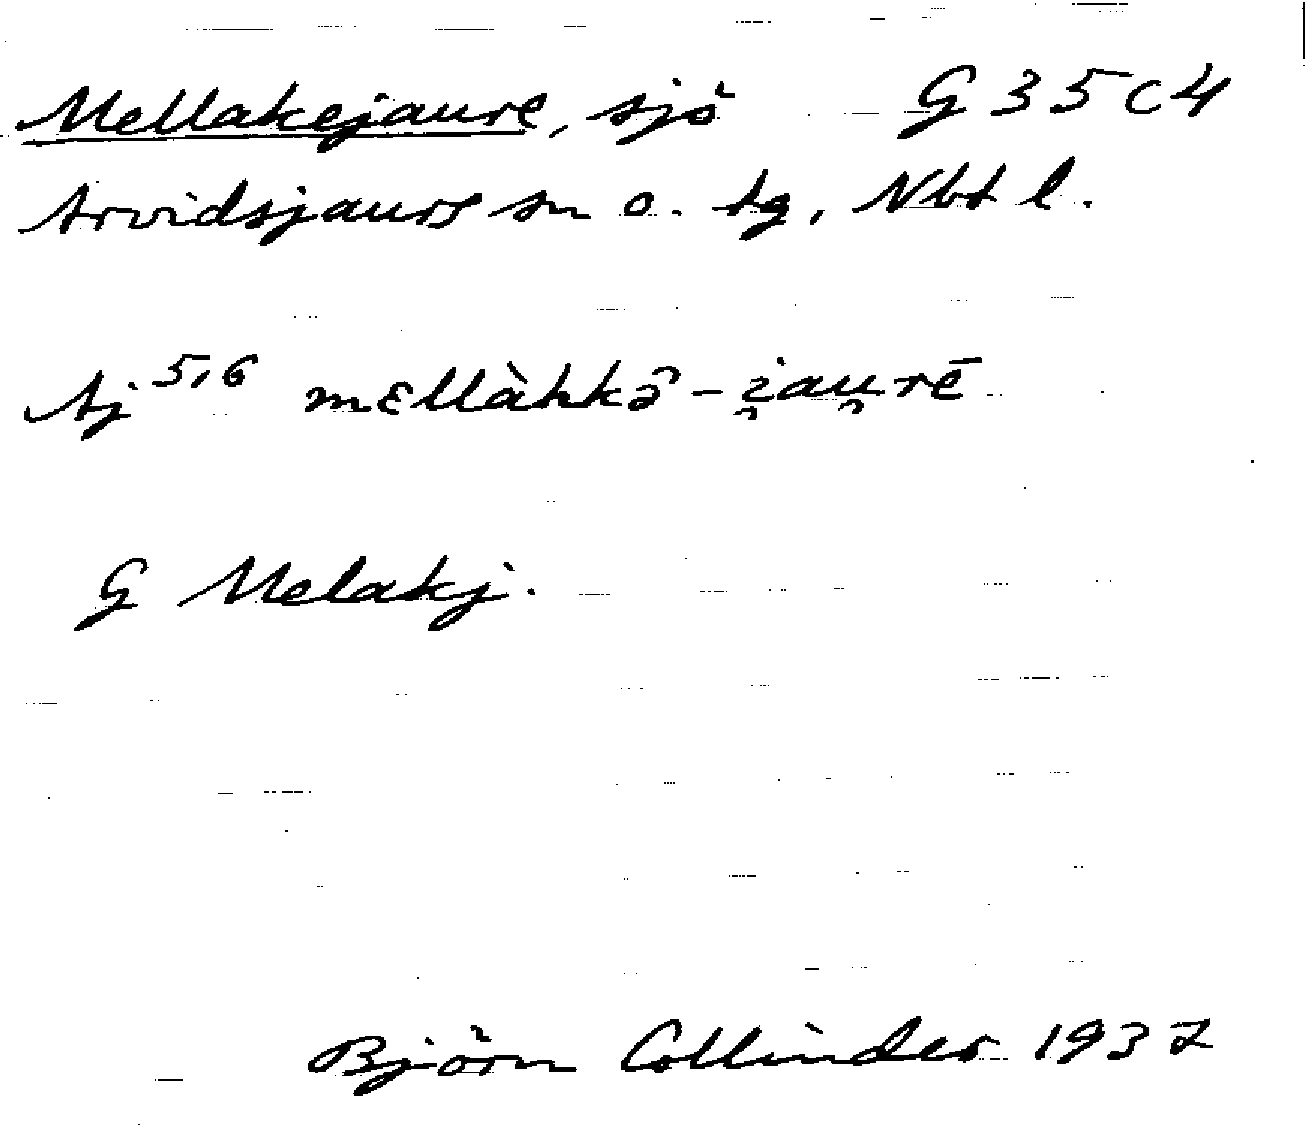 Mellakejaure, sjö G 35 C 4
Arvidsjaurs sn o. tg, Nbt l.
Aj 5,6 mɛllàkkə̑-i̯au̯rē
G Melakj.
Björn Collinder 1937